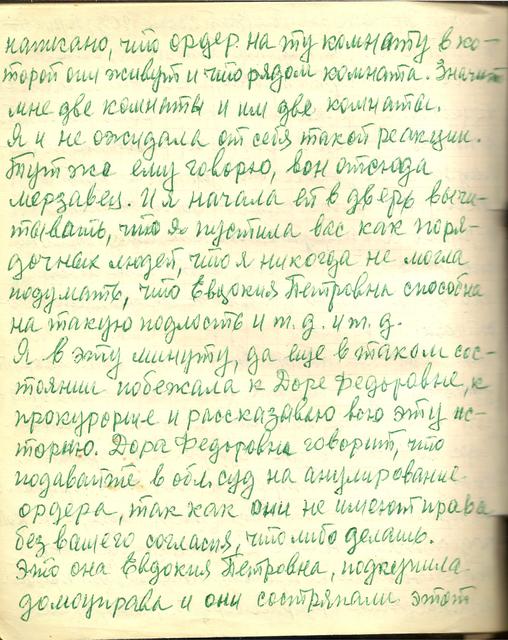 написано, что ордер на ту комнату в ко-
торой они живут и что рядом комната. Значит
мне две комнаты и им две комнаты.
Я и не ожидала от себя такой реакции.
Тут же ему говорю, вон отсюда
мерзавец. И я начала ей в дверь вычи-
тывать, что я пустила вас как поря-
дочных людей, что я никогда не могла
подумать, что Евдокия Петровна способна
на такую подлость и т.д. и т.д.
Я в эту минуту, да еще в таком сос-
тоянии побежала к Доре Федоровне, к
прокурорше и рассказываю всю эту ис-
торию. Дора Федоровна говорит, что
подавайте в обл. суд на анулирование
ордера, так как они не имеют права
без вашего согласия, что либо делать.
Это она Евдокия Петровна, подкупила
домоуправа и они состряпали этот